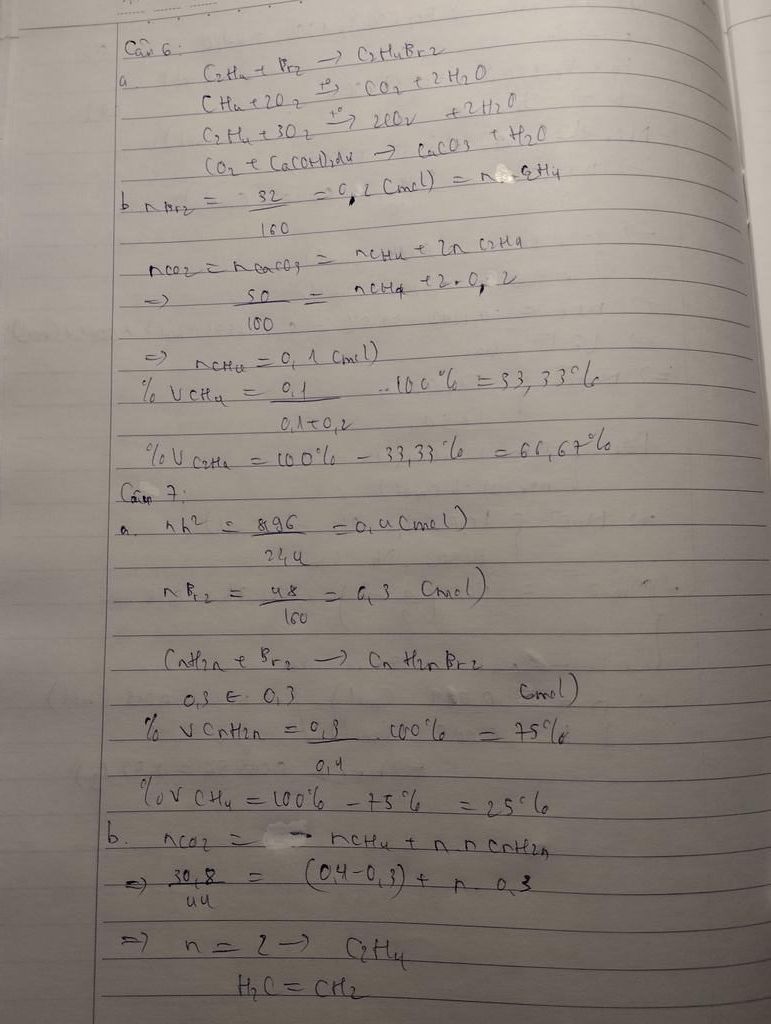 Câu 6:
a C2H4 + Br2 → C2H4Br2
CH4 + 2O2 t°→ CO2 + 2H2O
C2H4 + 3O2 t°→ 2CO2 + 2H2O
CO2 + Ca(OH)2 dư → CaCO3 + H2O
b nBr2 = 32/160 = 0,2 (mol) = n C2H4
nCO2 = nCaCO3 = nCH4 + 2n C2H4
=> 50/100 = nCH4 + 2.0,2
=> nCH4 = 0,1 (mol)
% VCH4 = 0,1/0,1+0,2 .100% = 33,33%
%V C2H4 = 100% - 33,33% = 66,67%
Câu 7:
a. nh² = 8,96/22,4 = 0,4 (mol)
nBr2 = 48/160 = 0,3 (mol)
CnH2n + Br2 → CnH2nBr2
0,3 ← 0,3 (mol)
% V CnH2n = 0,3/0,4 .100% = 75%
%V CH4 = 100% - 75% = 25%
b. nCO2 = nCH4 + n n CnH2n
=> 30,8/44 = (0,4-0,3) + n. 0,3
=> n = 2 → C2H4
H2C = CH2